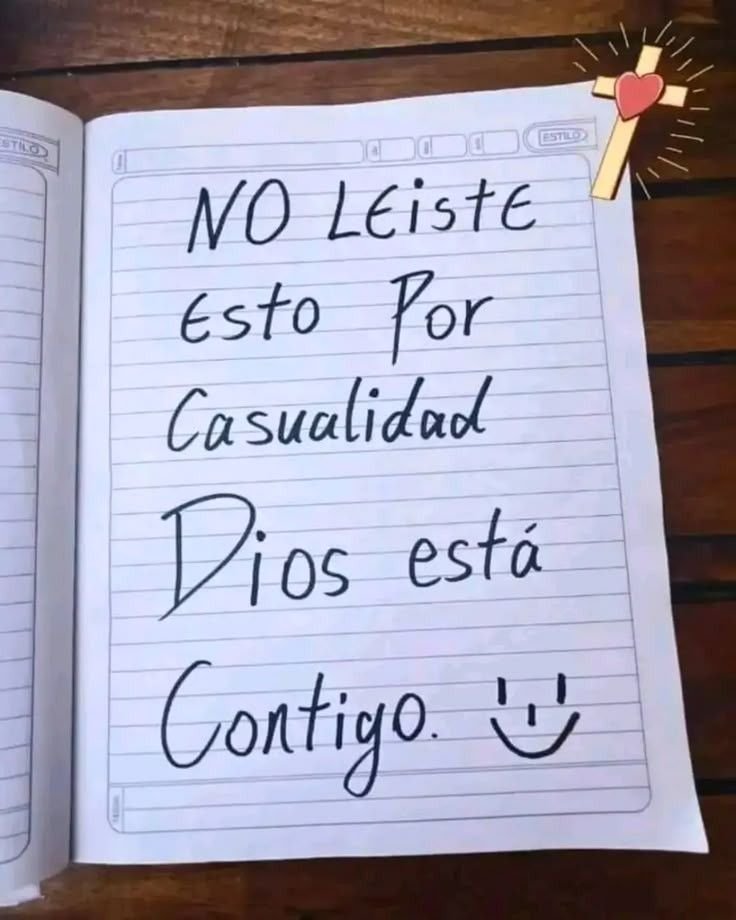 ESTILO
ESTILO
NO LEiStE
Esto Por
Casualidad
Dios está
Contigo.